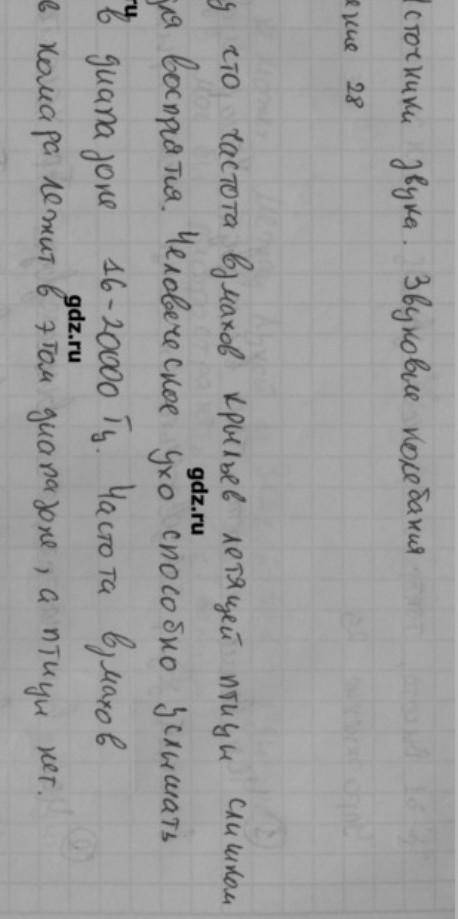 Источники звука. Звуковые колебания
ение 28
у что частота взмахов крыльев летящей птицы слишком
восприятия. Человеческое ухо способно услышать
gdz.ru
в диапазоне 16-20000 Гц. Частота взмахов
ru
в комара лежит в этом диапазоне, а птицы нет.
gdz.ru